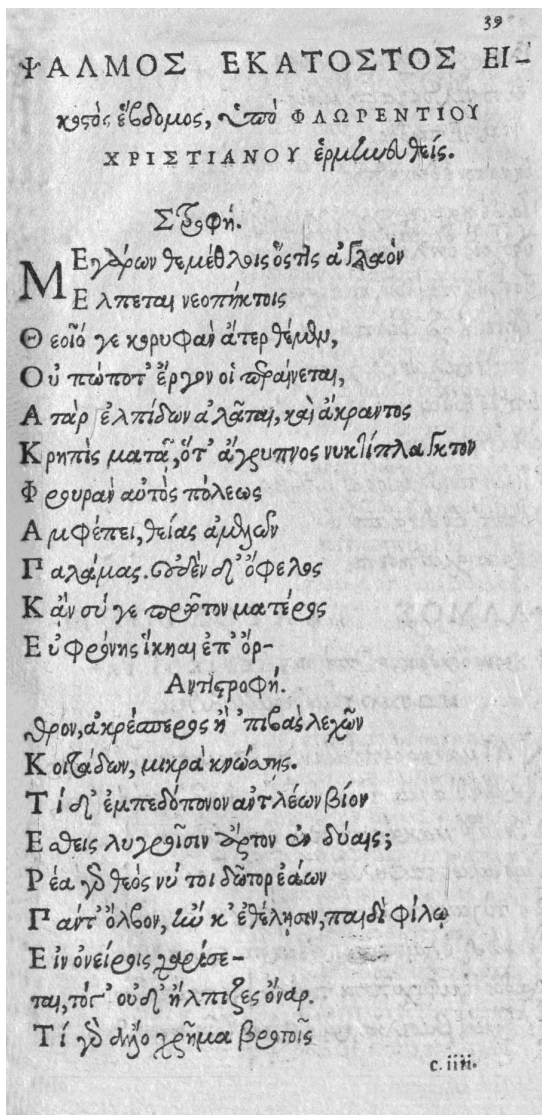 39
ΨΑΛΜΟΣ ΕΚΑΤΟΣΤΟΣ ΕΙ-
κοστὸς ἕβδομος, ὑπὸ ΦΛΩΡΕΝΤΙΟΥ
ΧΡΙΣΤΙΑΝΟΥ ἑρμηνευθείς.
Στροφή.
ΜΕγάρων θεμέθλοις ὅστις ἀγλαὸν
Ἔλπεται νεοπήκτοις
Θεοῖό γε κορυφὰν ἄτερ θέμεν,
Οὐ πώποτ' ἔργον οἱ πραίνεται,
Ατὰρ ἐλπίδων ἀλᾶται, καὶ ἄκραντος
Κρηπὶς ματᾷ, ὅτ' ἄγρυπνος νυκτίπλαγκτον
Φρουρὰν αὐτὸς πόλεως
Αμφέπει, θείας ἀμελῶν
Παλάμας. Οὐδὲν δ' ὄφελος
Κἀν σύ γε πρῶτον ματέρος
Εὐφρόνης ἵκηαι ἐπ' ὄρ-
Αντιστροφή.
θρον, ἀκρέσπερος ἢ 'πιβὰς λεχῶν
Κοιτάδων, μικρὰ κνώσσῃς.
Τί δ' ἐμπεδόπονον ἀντλέων βίον
Εσθεις λυγροῖσιν ἄρτον ἐν δύαις;
Ρέα γὰρ θεὸς νύ τοι δῶτορ ἐάων
Πάντ' ὄλβον, ἤν κ' ἐθέλῃσιν, παιδὶ φίλῳ
Εἰν ὀνείροις χαρίσε-
ται, τόγ' οὐδ' ἤλπιζες ὄναρ.
Τί γὰρ χρῆμα βροτοῖς
c.iiii.